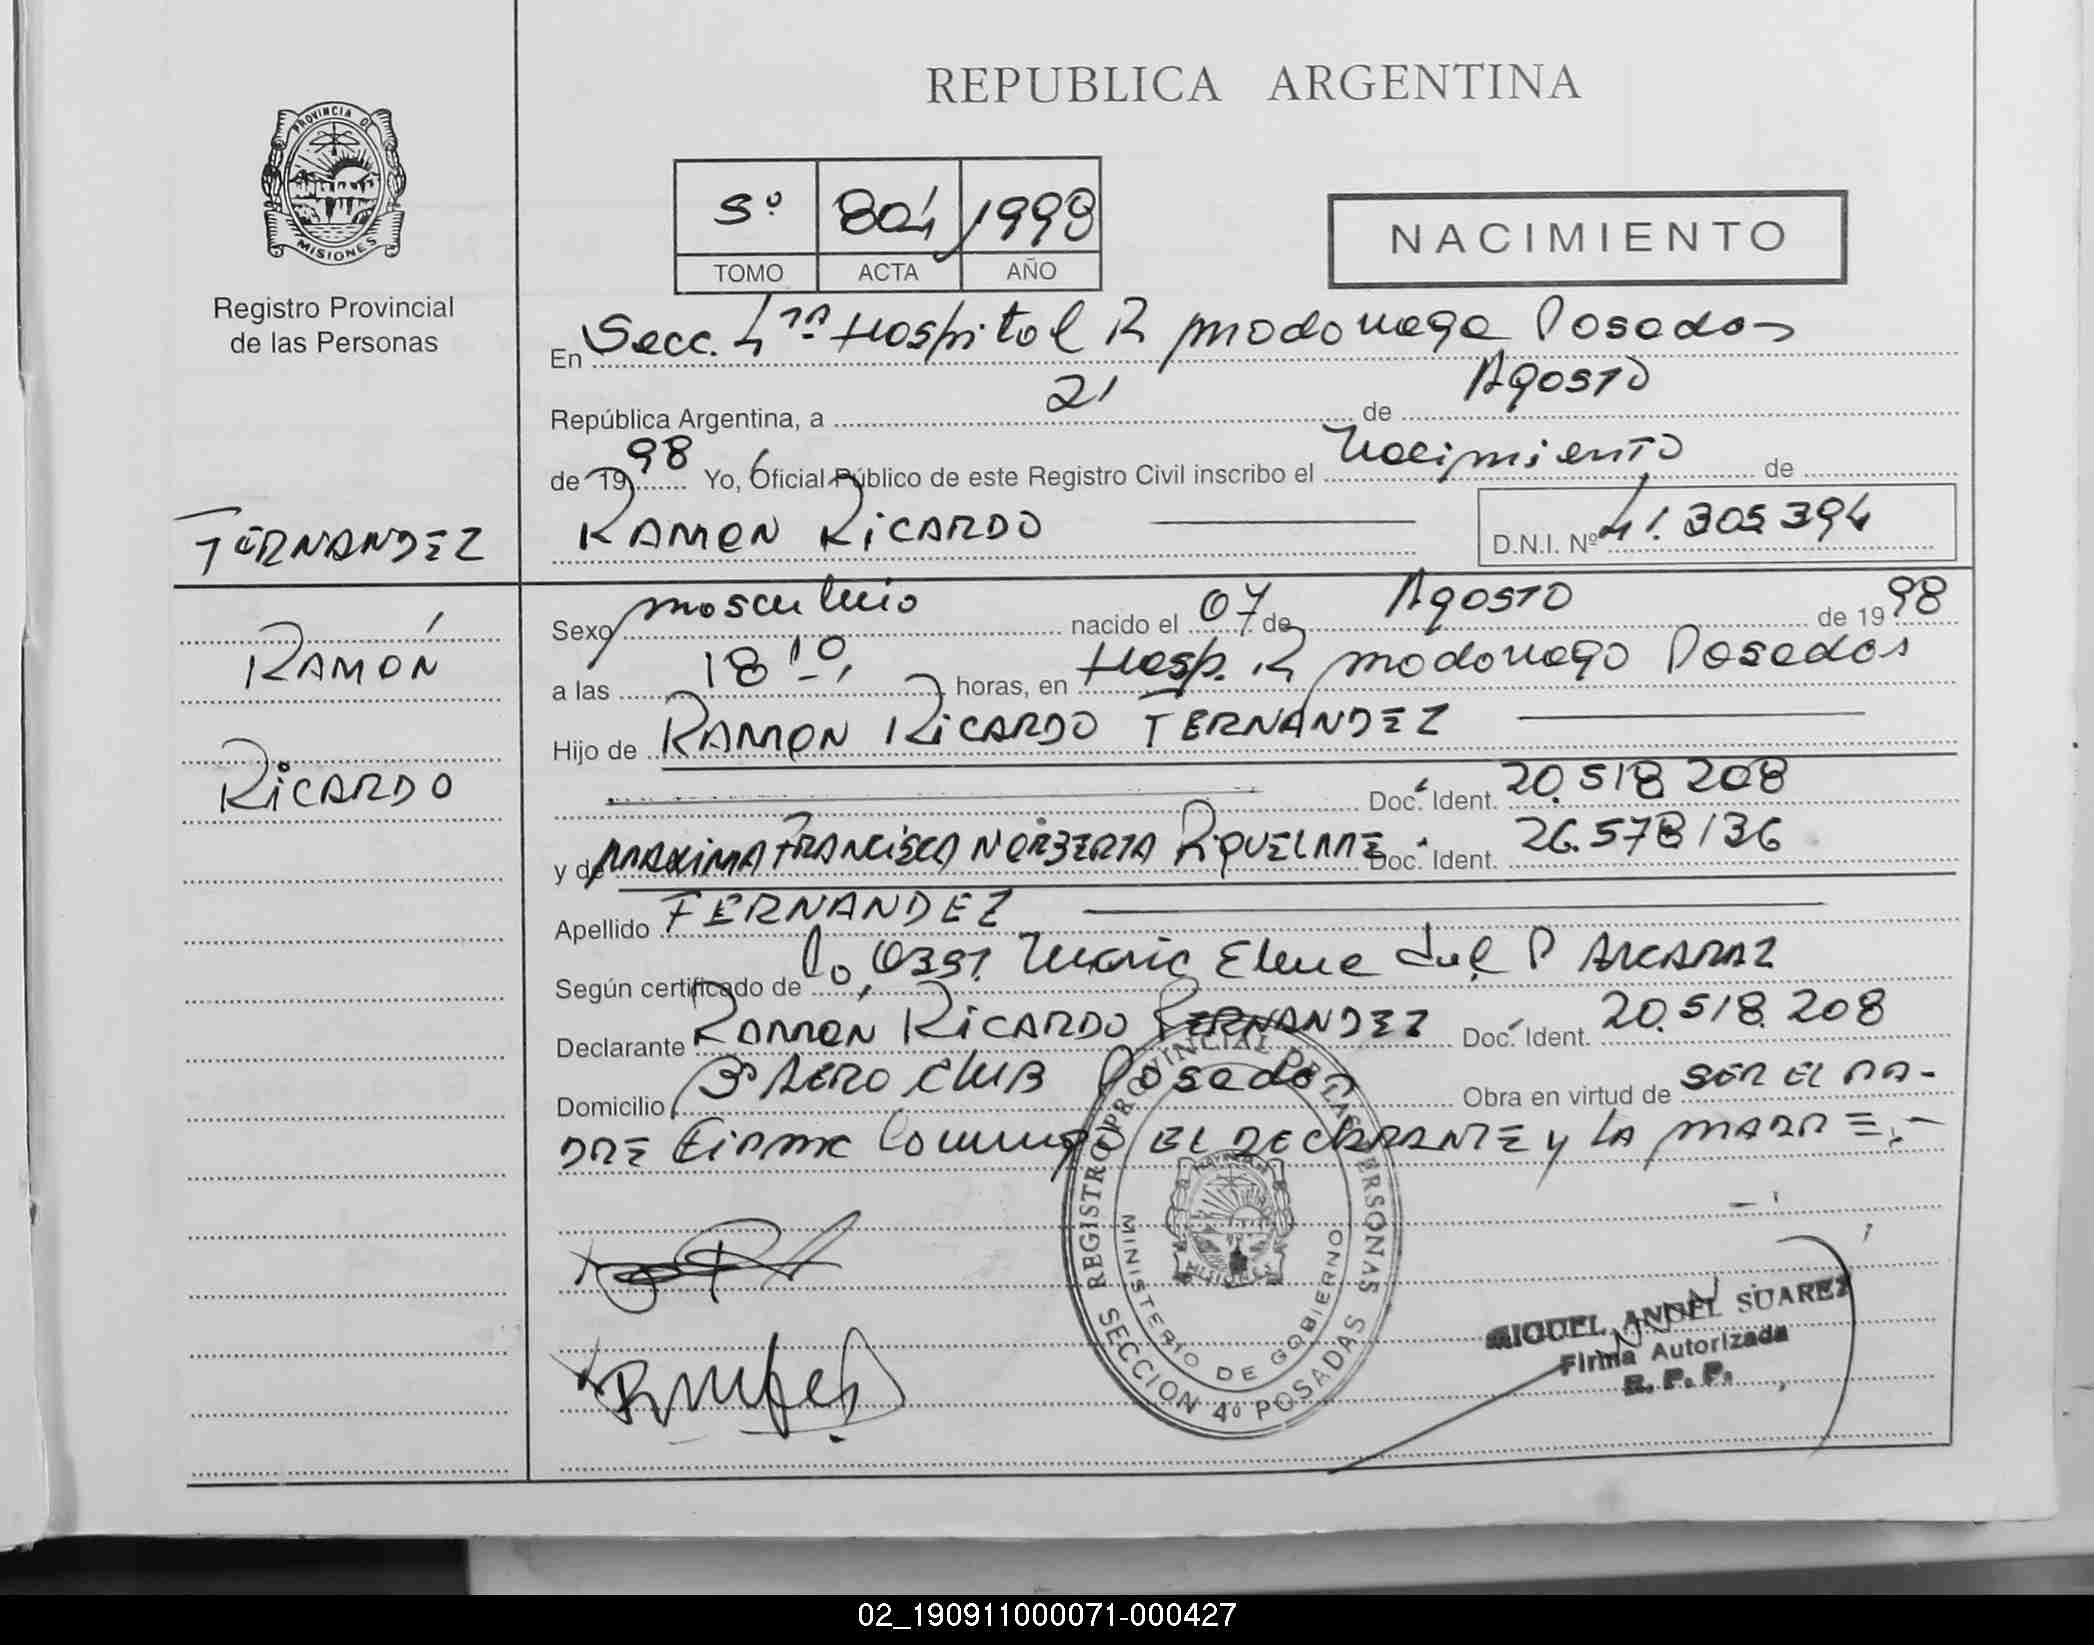 REPUBLICA ARGENTINA
PROVINCIA DE
MISIONES
Registro Provincial
de las Personas
5º 804 1998
TOMO ACTA AÑO
NACIMIENTO
En Secc. 4ta Hospital R Madariaga Posadas
República Argentina, a 21 de Agosto
de 1998 Yo, Oficial Público de este Registro Civil inscribo el Nacimiento de
FERNANDEZ
RAMON RICARDO D.N.I. Nº 41.305 394
RAMÓN
RICARDO
Sexo masculino nacido el 07 de Agosto de 1998
a las 18 10 horas, en Hosp. R Madariaga Posadas
Hijo de RAMON RICARDO FERNANDEZ
Doc. Ident. 20.518 208
y de MAXIMA FRANCISCA NORBERTA RIQUELME Doc. Ident. 26.578136
Apellido FERNANDEZ
Según certificado de Po, Obst. Maria Elena del P ALCARAZ
Declarante RAMON RICARDO FERNANDEZ Doc. Ident. 20.518.208
Domicilio Bº AERO CLUB Posadas Obra en virtud de SER EL PA-
DRE Firma Conmigo EL DECLARANTE y LA MADRE.-
REGISTRO PROVINCIAL DE LAS PERSONAS
MINISTERIO DE GOBIERNO
SECCION 4º POSADAS
MIGUEL ANGEL SUAREZ
Firma Autorizada
R. P. P.
02_190911000071-000427